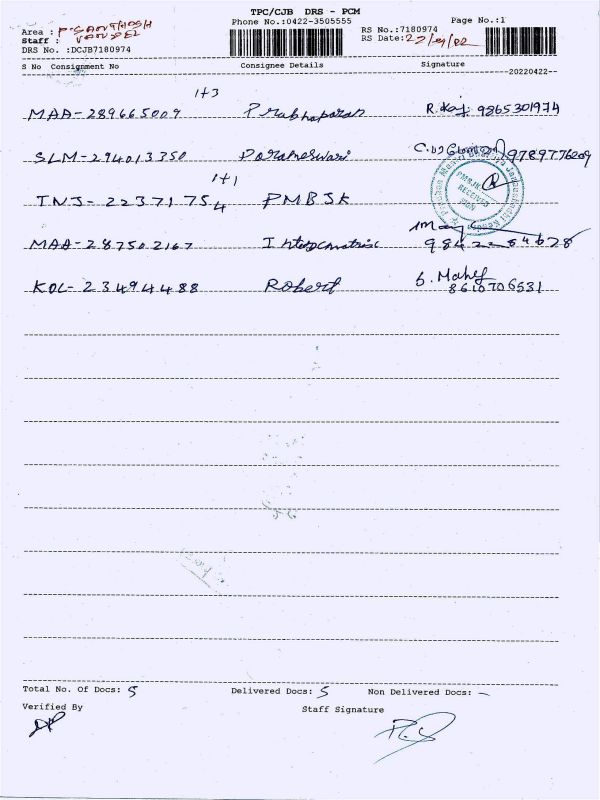 TPC/CJB DRS - PCM
Phone No.:0422-3505555 Page No.:1
Area : P. SANTHOSH
Staff :
DRS No. :DCJB7180974
RS No.:7180974
RS Date:22/04/22
S No Consignment No Consignee Details Signature
--20220422--
1+3
MAA-289665009 Prabhaparan R. Raj. 9865301974
SLM-294013350 Parameswari 9789776209
1+1
TNJ-22371754 PMBJK
Pradhan Mantri Bhartiya Janaushadhi Kendra
PMBJK
RECEIVED
SIGN
MAA-287502167
KOL-23494488 Robert S. Mahe
8610706531
Total No. Of Docs: 5 Delivered Docs: 5 Non Delivered Docs: -
Verified By Staff Signature